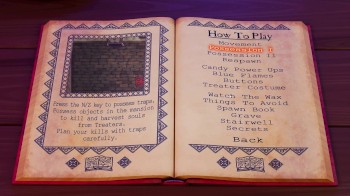 Press the M/Z key to possess traps.
Possess objects in the mansion
to kill and harvest souls
from Treaters.
Plan your kills with traps
carefully.
How To Play
Movement
Possession I
Possession II
Respawn
Candy Power Ups
Blue Flames
Buttons
Treater Costume
Watch The Wax
Things To Avoid
Spawn Book
Grave
Stairwell
Secrets
Back